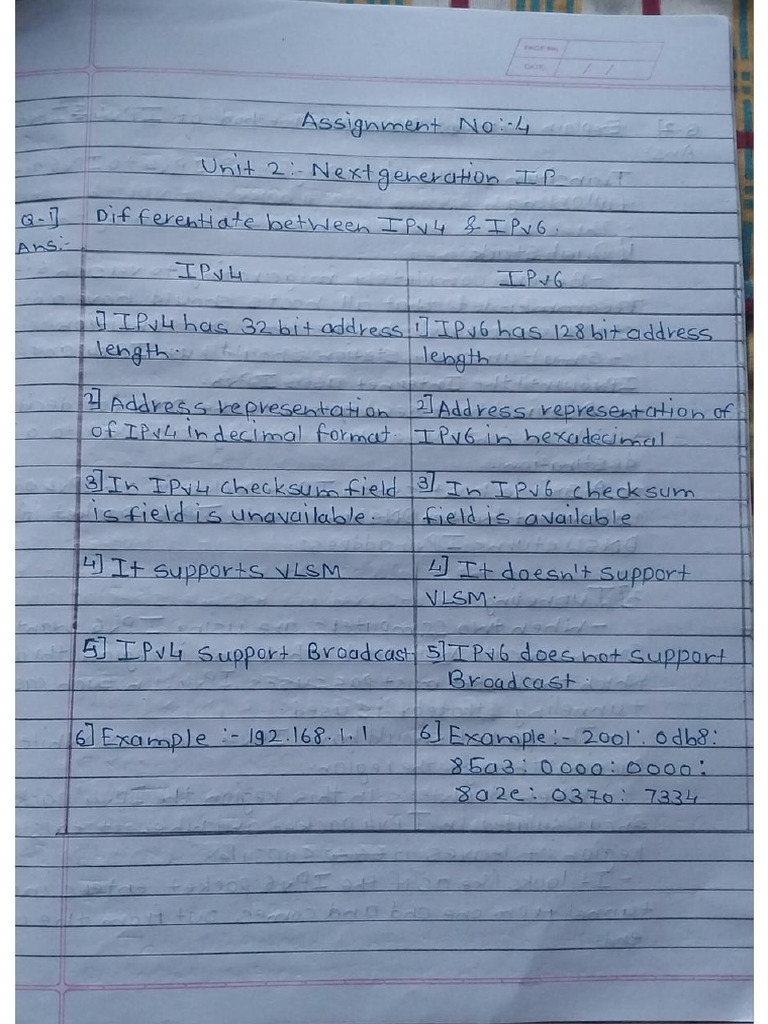 PAGE No.
DATE: / /
Assignment No:-4
Unit 2:- Next generation IP
Q-1] Differentiate between IPv4 & IPv6.
Ans:-
IPv4 IPv6
1] IPv4 has 32 bit address 1] IPv6 has 128 bit address
length. length
2] Address representation 2] Address representation of
of IPv4 in decimal format. IPv6 in hexadecimal
3] In IPv4 checksum field 3] In IPv6 checksum
is field is unavailable. field is available
4] It supports VLSM 4] It doesn't support
VLSM.
5] IPv4 Support Broadcast 5] IPv6 does not support
Broadcast.
6] Example :- 192.168.1.1 6] Example :- 2001: 0db8:
85a3: 0000: 0000:
8a2e: 0370: 7334